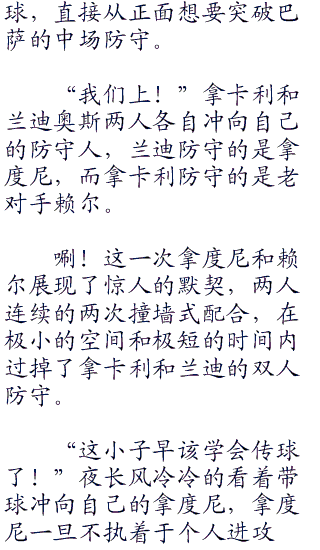 球，直接从正面想要突破巴
萨的中场防守。
“我们上！”拿卡利和
兰迪奥斯两人各自冲向自己
的防守人，兰迪防守的是拿
度尼，而拿卡利防守的是老
对手赖尔。
唰！这一次拿度尼和赖
尔展现了惊人的默契，两人
连续的两次撞墙式配合，在
极小的空间和极短的时间内
过掉了拿卡利和兰迪的双人
防守。
“这小子早该学会传球
了！”夜长风冷冷的看着带
球冲向自己的拿度尼，拿度
尼一旦不执着于个人进攻